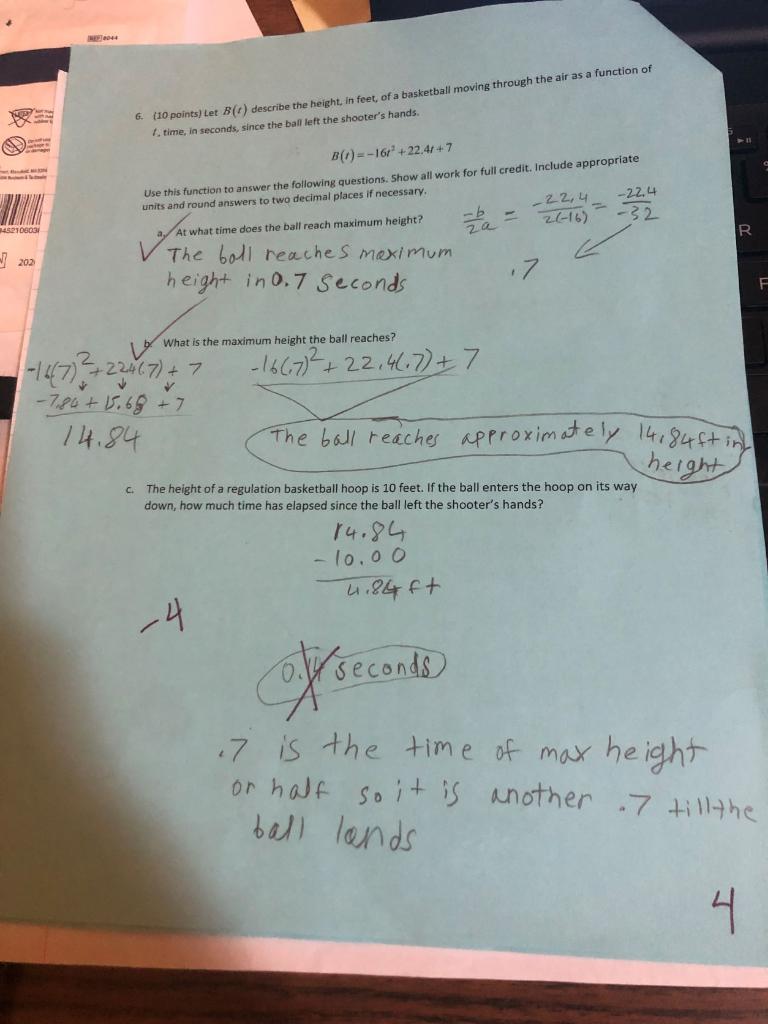 REF 8044
6. (10 points) Let B(t) describe the height, in feet, of a basketball moving through the air as a function of
t, time, in seconds, since the ball left the shooter's hands.
B(t) = -16t² + 22.4t + 7
Use this function to answer the following questions. Show all work for full credit. Include appropriate
units and round answers to two decimal places if necessary.
a. At what time does the ball reach maximum height?
-b/2a = -22.4/2(-16) = -22.4/-32
.7
The ball reaches maximum
height in 0.7 seconds
b. What is the maximum height the ball reaches?
-16(.7)² + 22.4(.7) + 7
-7.84 + 15.68 + 7
14.84
-16(.7)² + 22.4(.7) + 7
The ball reaches approximately 14.84ft in
height
c. The height of a regulation basketball hoop is 10 feet. If the ball enters the hoop on its way
down, how much time has elapsed since the ball left the shooter's hands?
14.84
- 10.00
4.84 ft
-4
seconds
.7 is the time of max height
or half so it is another .7 till the
ball lands
4
202
R
F